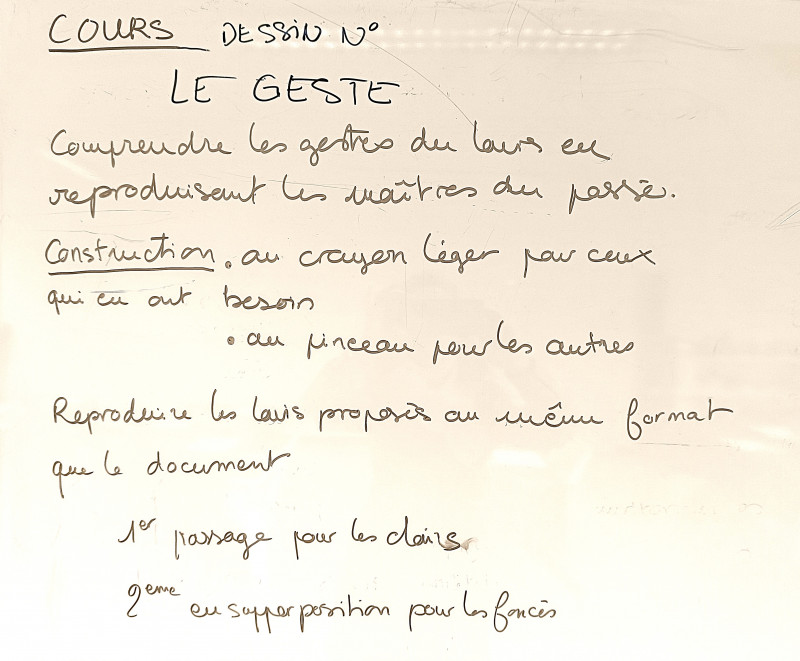 COURS DESSIN N°
LE GESTE
Comprendre les gestes du lavis en
reproduisant les maîtres du passé.
Construction . au crayon léger pour ceux
qui en ont besoin
• au pinceau pour les autres
Reproduire les lavis proposés au même format
que le document
1er passage pour les clairs
2eme en supperposition pour les foncés